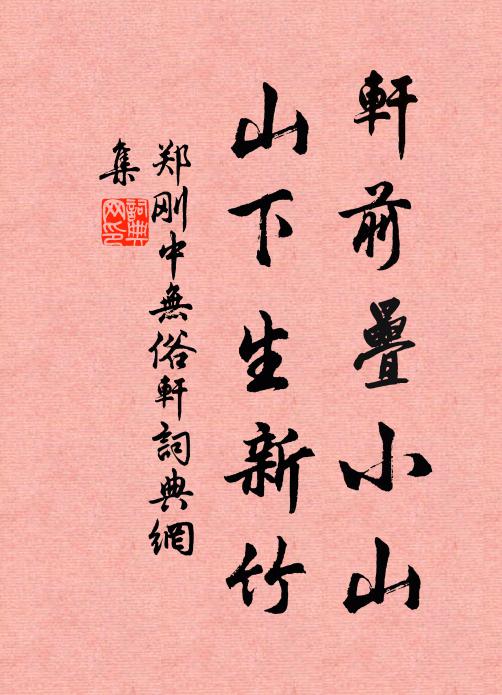 軒前疊小山
山下生新竹
郑刚中無俗軒詞典網
集
詞典
网印